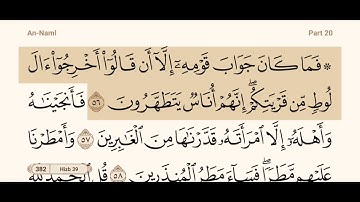 An-Naml Part 20
۞ فَمَا كَانَ جَوَابَ قَوْمِهِۦٓ إِلَّآ أَن قَالُوٓا۟ أَخْرِجُوٓا۟ ءَالَ
لُوطٍ مِّن قَرْيَتِكُمْ ۖ إِنَّهُمْ أُنَاسٌ يَتَطَهَّرُونَ ٥٦ فَأَنجَيْنَـٰهُ
وَأَهْلَهُۥٓ إِلَّا ٱمْرَأَتَهُۥ قَدَّرْنَـٰهَا مِنَ ٱلْغَـٰبِرِينَ ٥٧ وَأَمْطَرْنَا
عَلَيْهِم مَّطَرًا ۖ فَسَآءَ مَطَرُ ٱلْمُنذَرِينَ ٥٨ قُلِ ٱلْحَمْدُ لِلَّهِ
382 Hizb 39